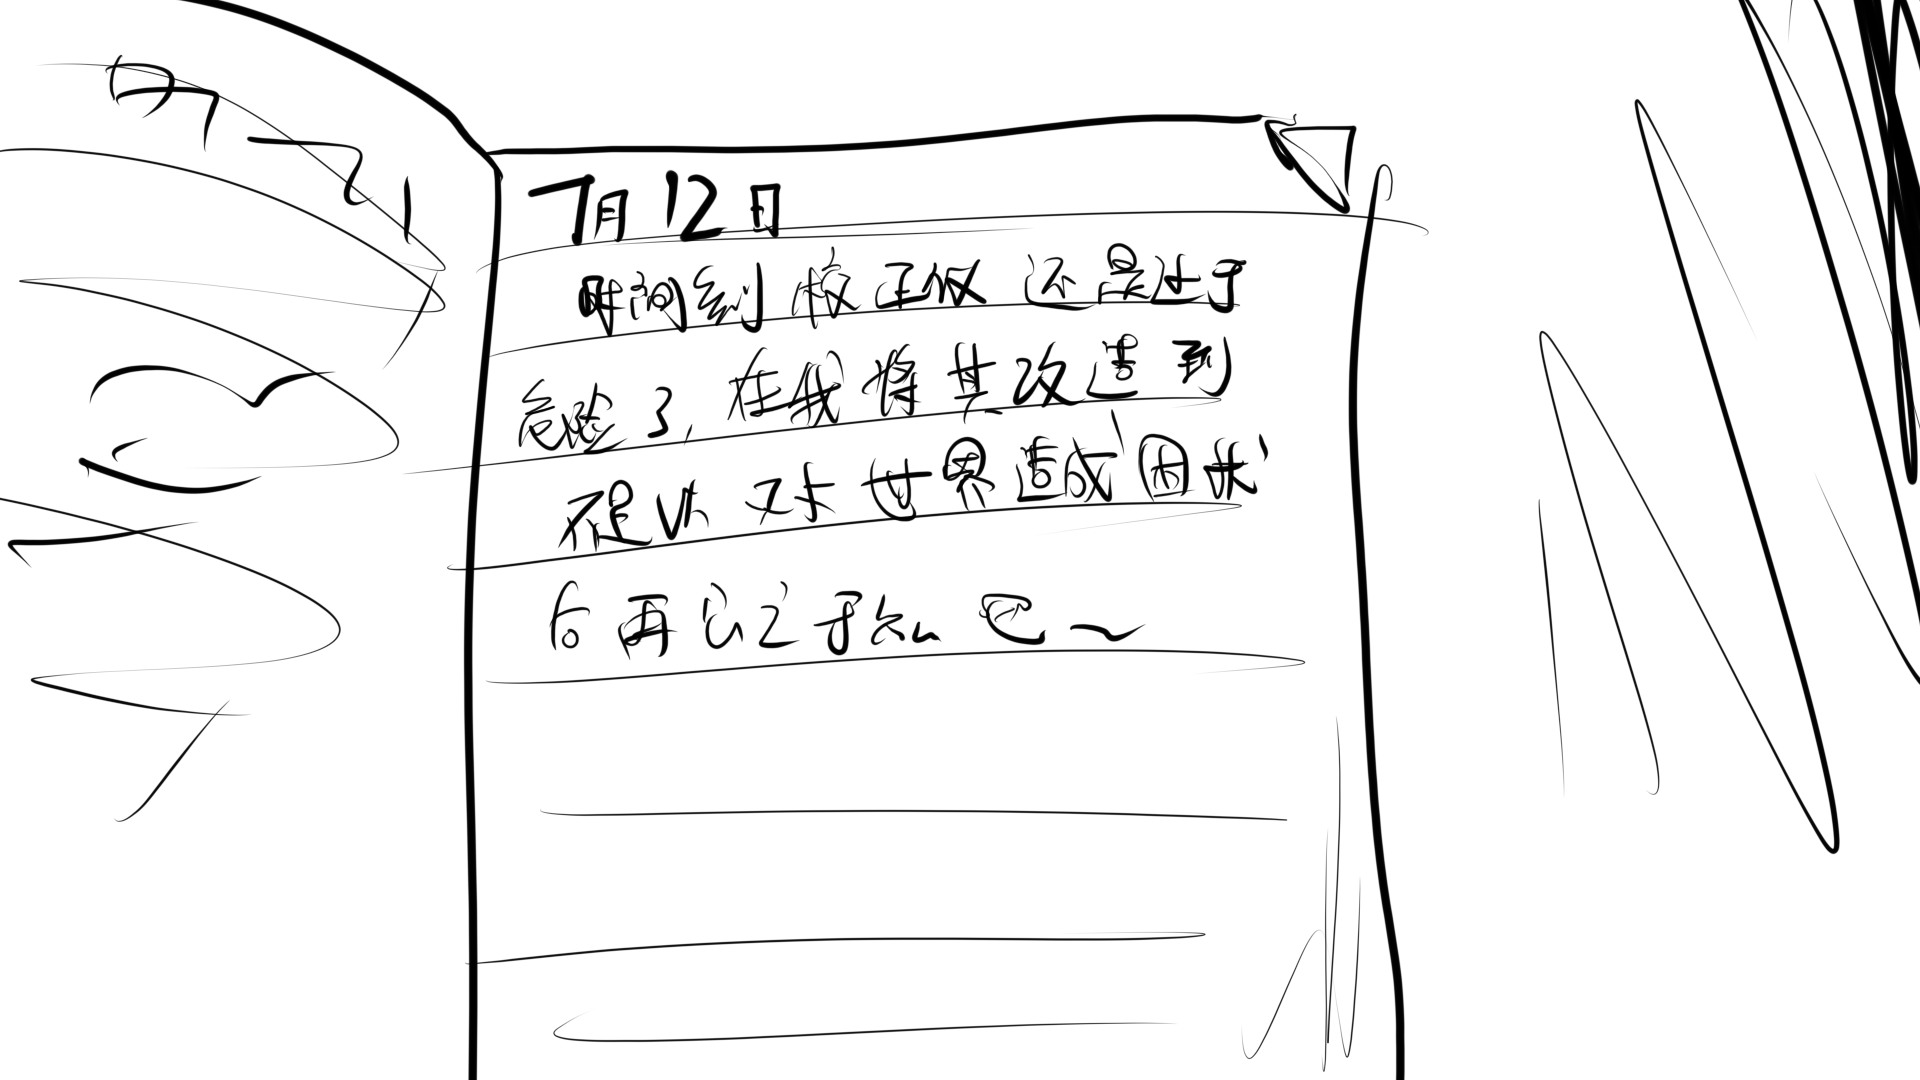 7月12日
时间刻校正仪还是过于
危险了，在我将其改造到
不足以对世界造成困扰
后再公之于众吧～